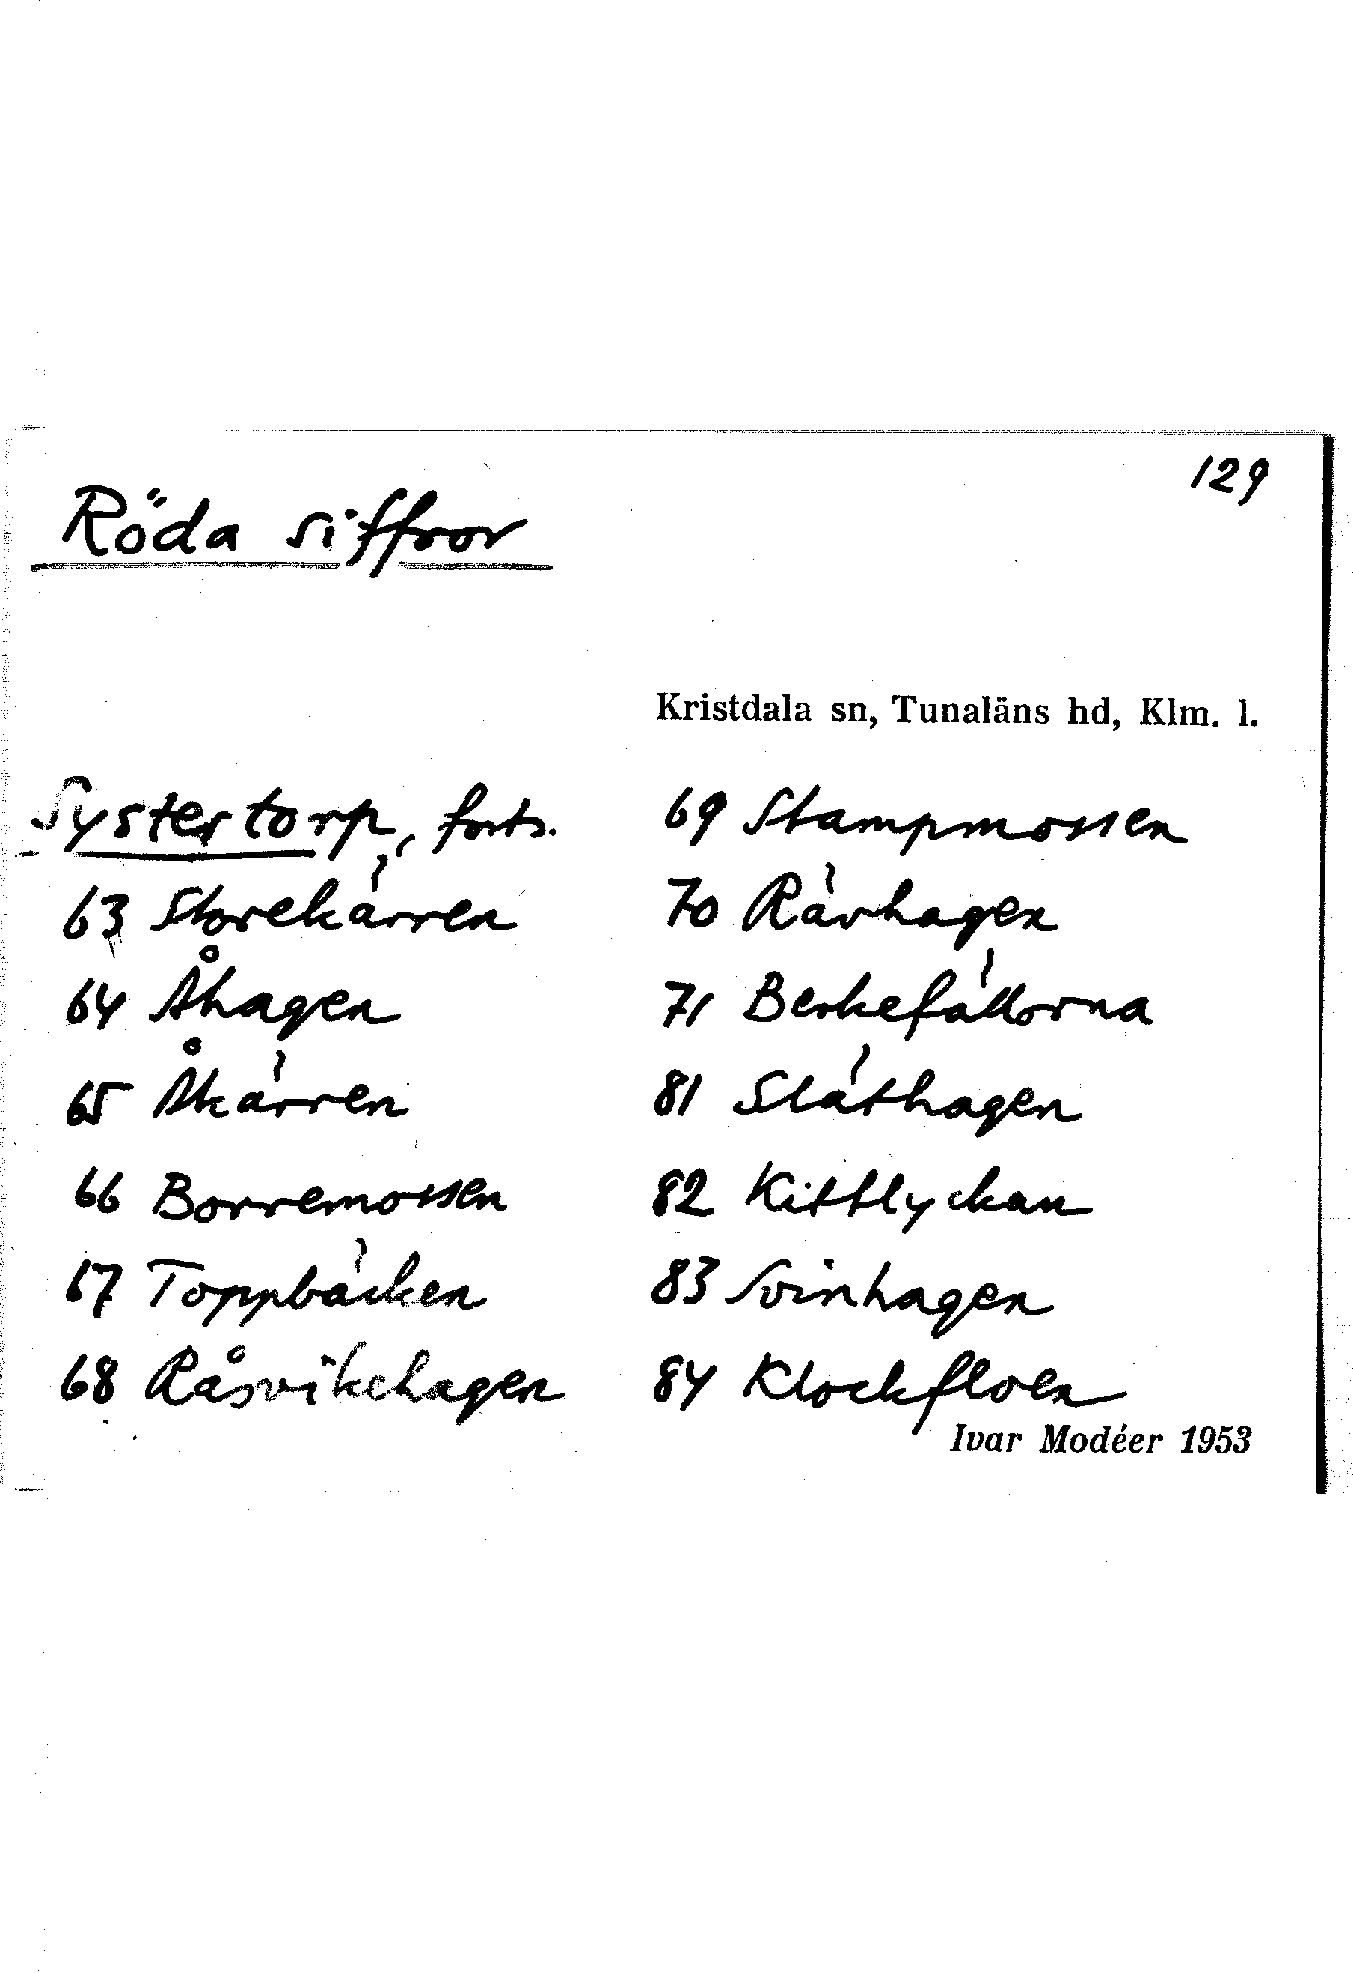 129
Röda siffror
Kristdala sn, Tunaläns hd, Klm. l.
Systertorp, forts.
63 Storekärren
64 Åhagen
65 Åkärren
66 Borremossen
67 Toppbäcken
68 Råsvikehagen
69 Stampmossen
70 Rävhagen
71 Berkefällorna
81 Släthagen
82 Kittlyckan
83 Svinhagen
84 Klockfloen
Ivar Modéer 1953